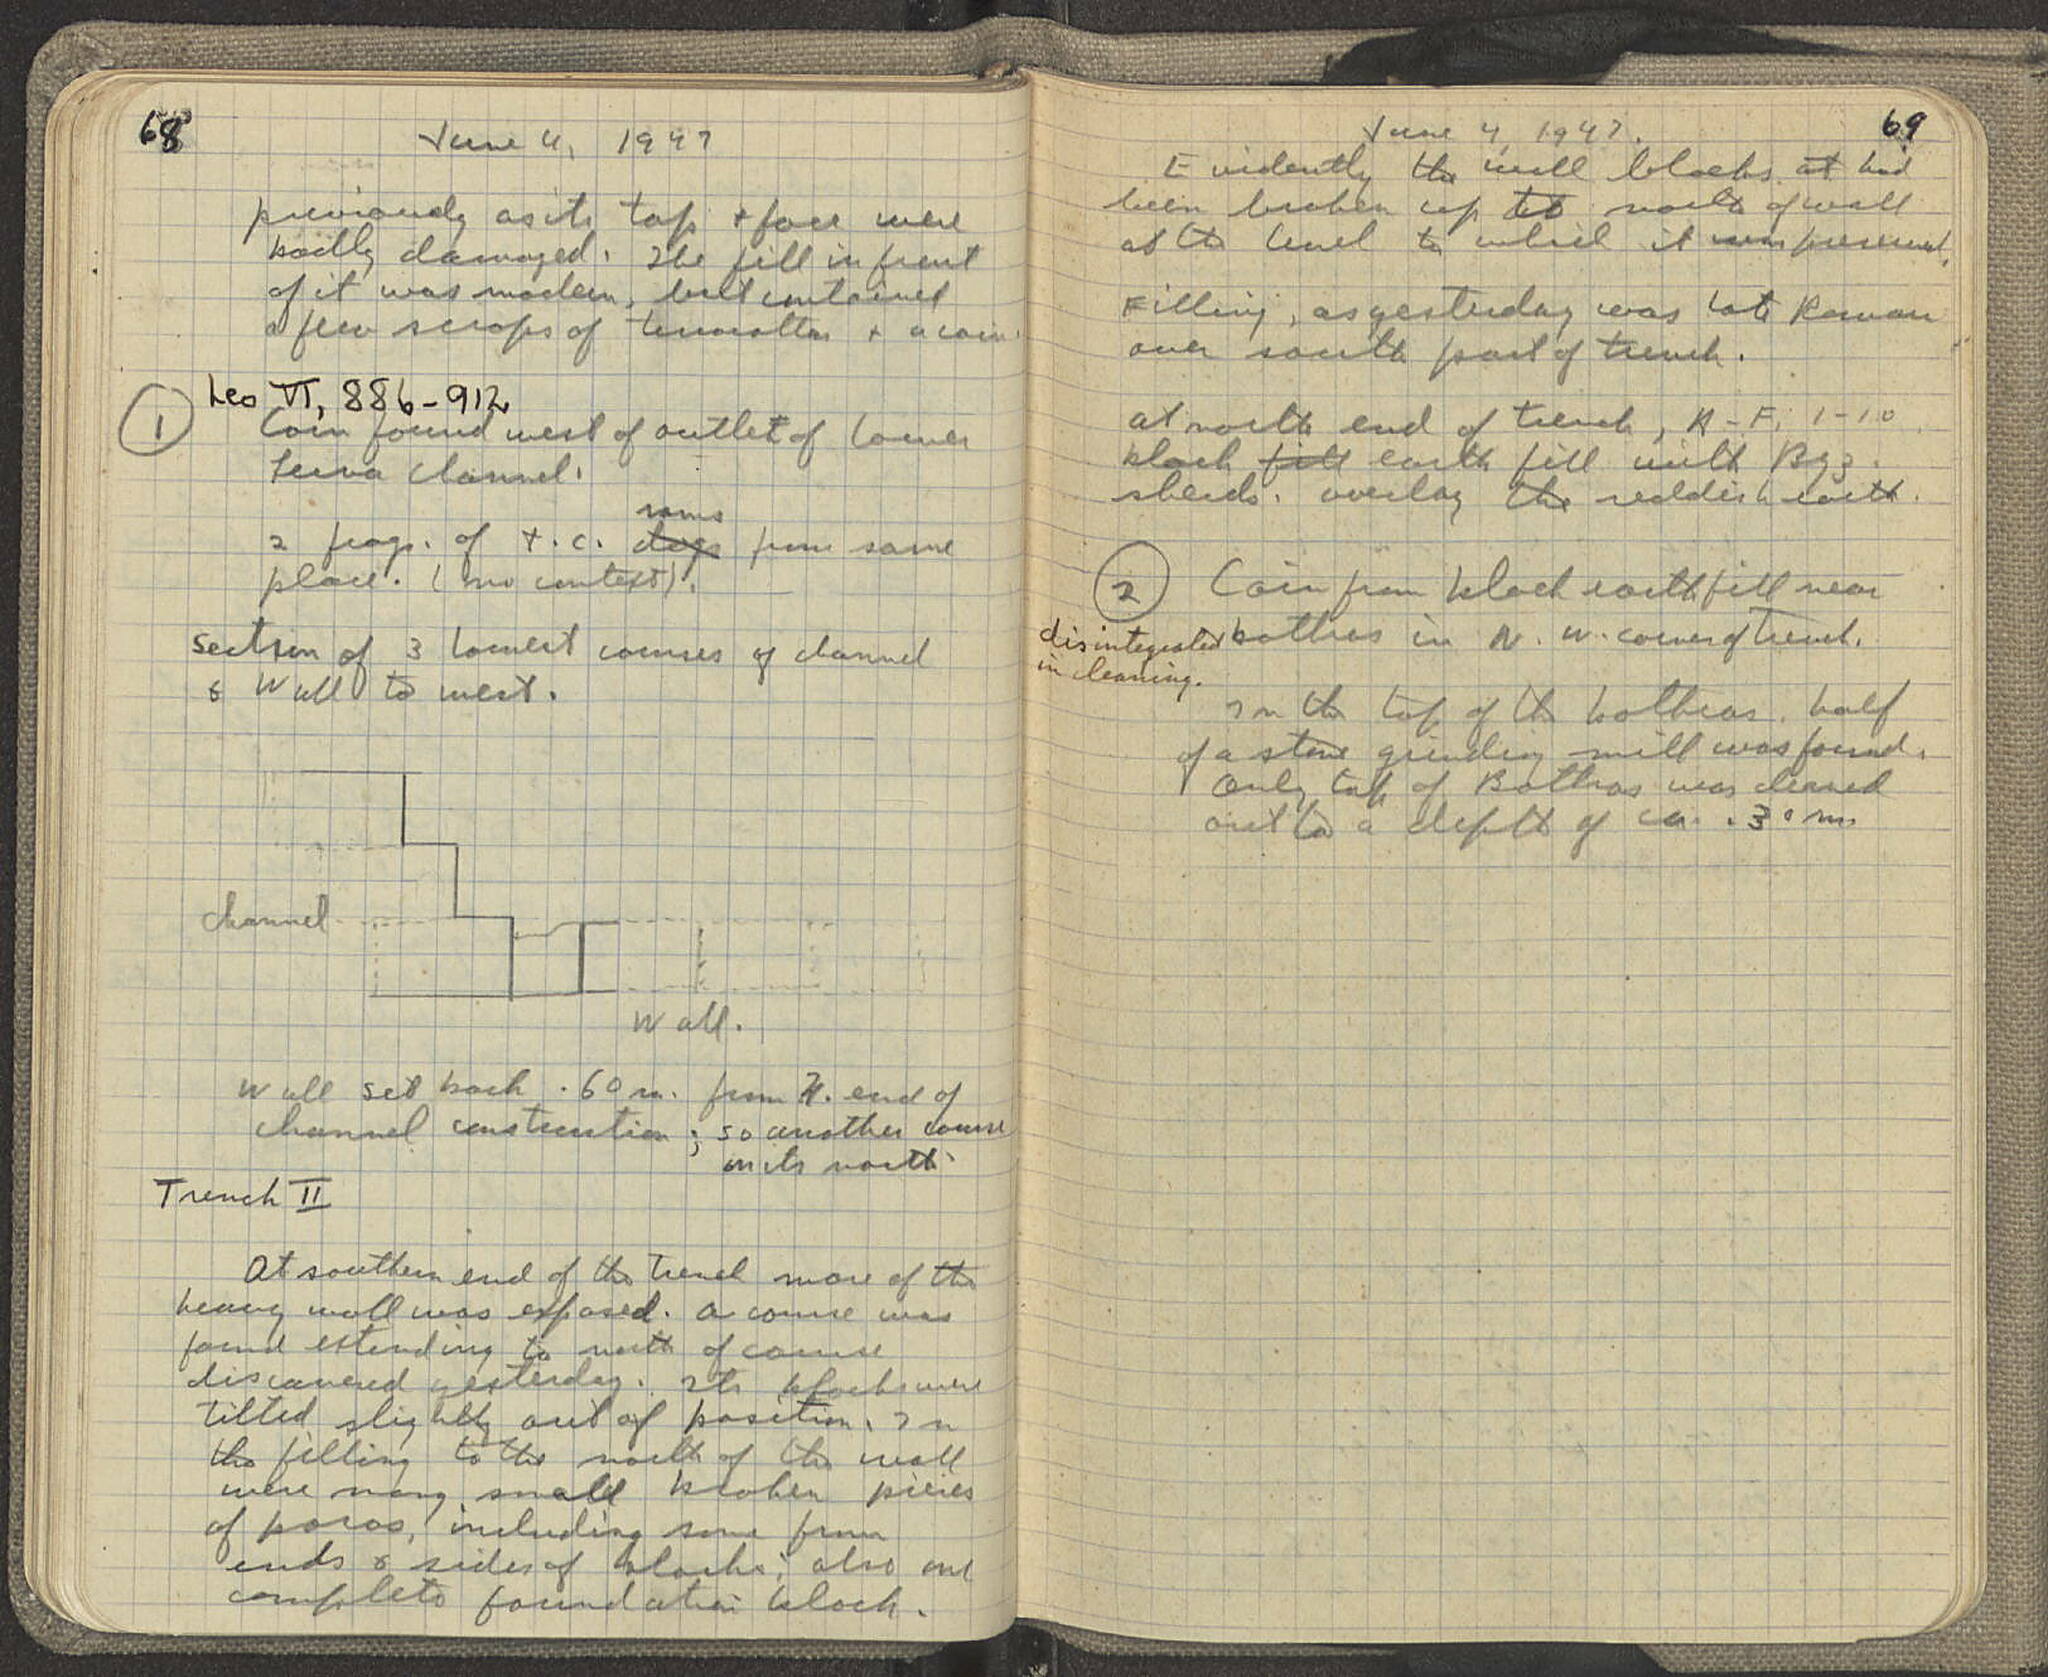 68
June 4, 1947
previously as its top + face were
badly damaged. The fill in front
of it was modern, but contained
a few scraps of terracottas + a coin.
Leo VI, 886-912
1 Coin found west of outlet of lower
channel.
rams
2 frags. of t.c. dogs from same
place. (no context).
Section of 3 lowest courses of channel
& Wall to west.
channel
Wall.
Wall set back .60 m. from N. end of
channel construction; so another course
on its north.
Trench II
At southern end of the trench more of the
heavy wall was exposed. A course was
found extending to north of course
discovered yesterday. Its blocks were
tilted slightly out of position. In
the filling to the north of the wall
were many small broken pieces
of poros, including some from
ends & sides of blocks; also one
complete foundation block.
69
June 4, 1947.
Evidently the wall blocks at had
been broken up to north of wall
at the level to which it was preserved.
Filling, as yesterday was late Roman
over south part of trench.
At north end of trench, A-F, 1-10
black fill earth fill with Byz.
sherds. overlay the reddish earth.
2 Coin from black earth fill near
bothros in N.W. corner of trench.
disintegrated
in cleaning.
In the top of the bothros. half
of a stone grinding mill was found.
Only top of Bothros was cleared
out to a depth of ca. .30 m